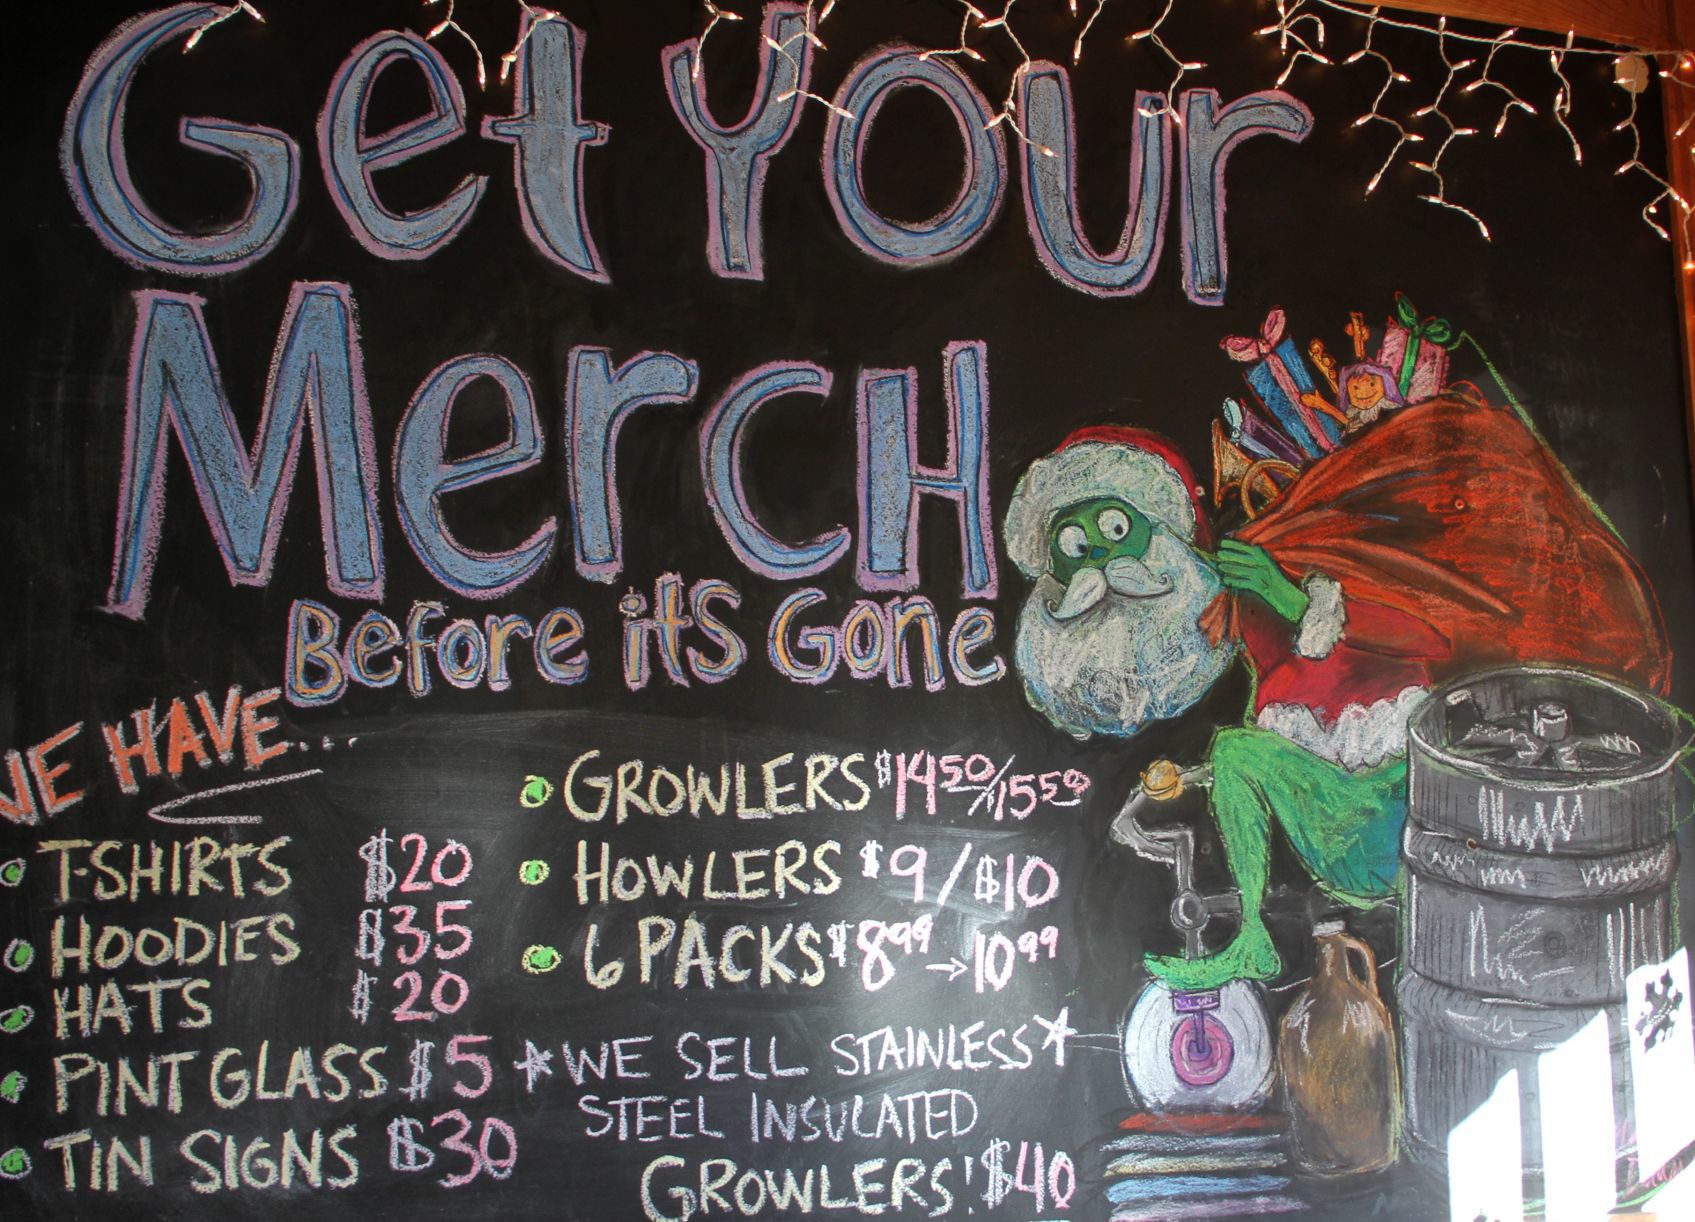 Get Your
MercH
Before it's Gone
WE HAVE...
T-SHIRTS $20
HOODIES $35
HATS $20
PINT GLASS $5
TIN SIGNS $30
GROWLERS $14.50/15.50
HOWLERS $9/$10
6 PACKS $8.99→10.99
*WE SELL STAINLESS*
STEEL INSULATED
GROWLERS! $40